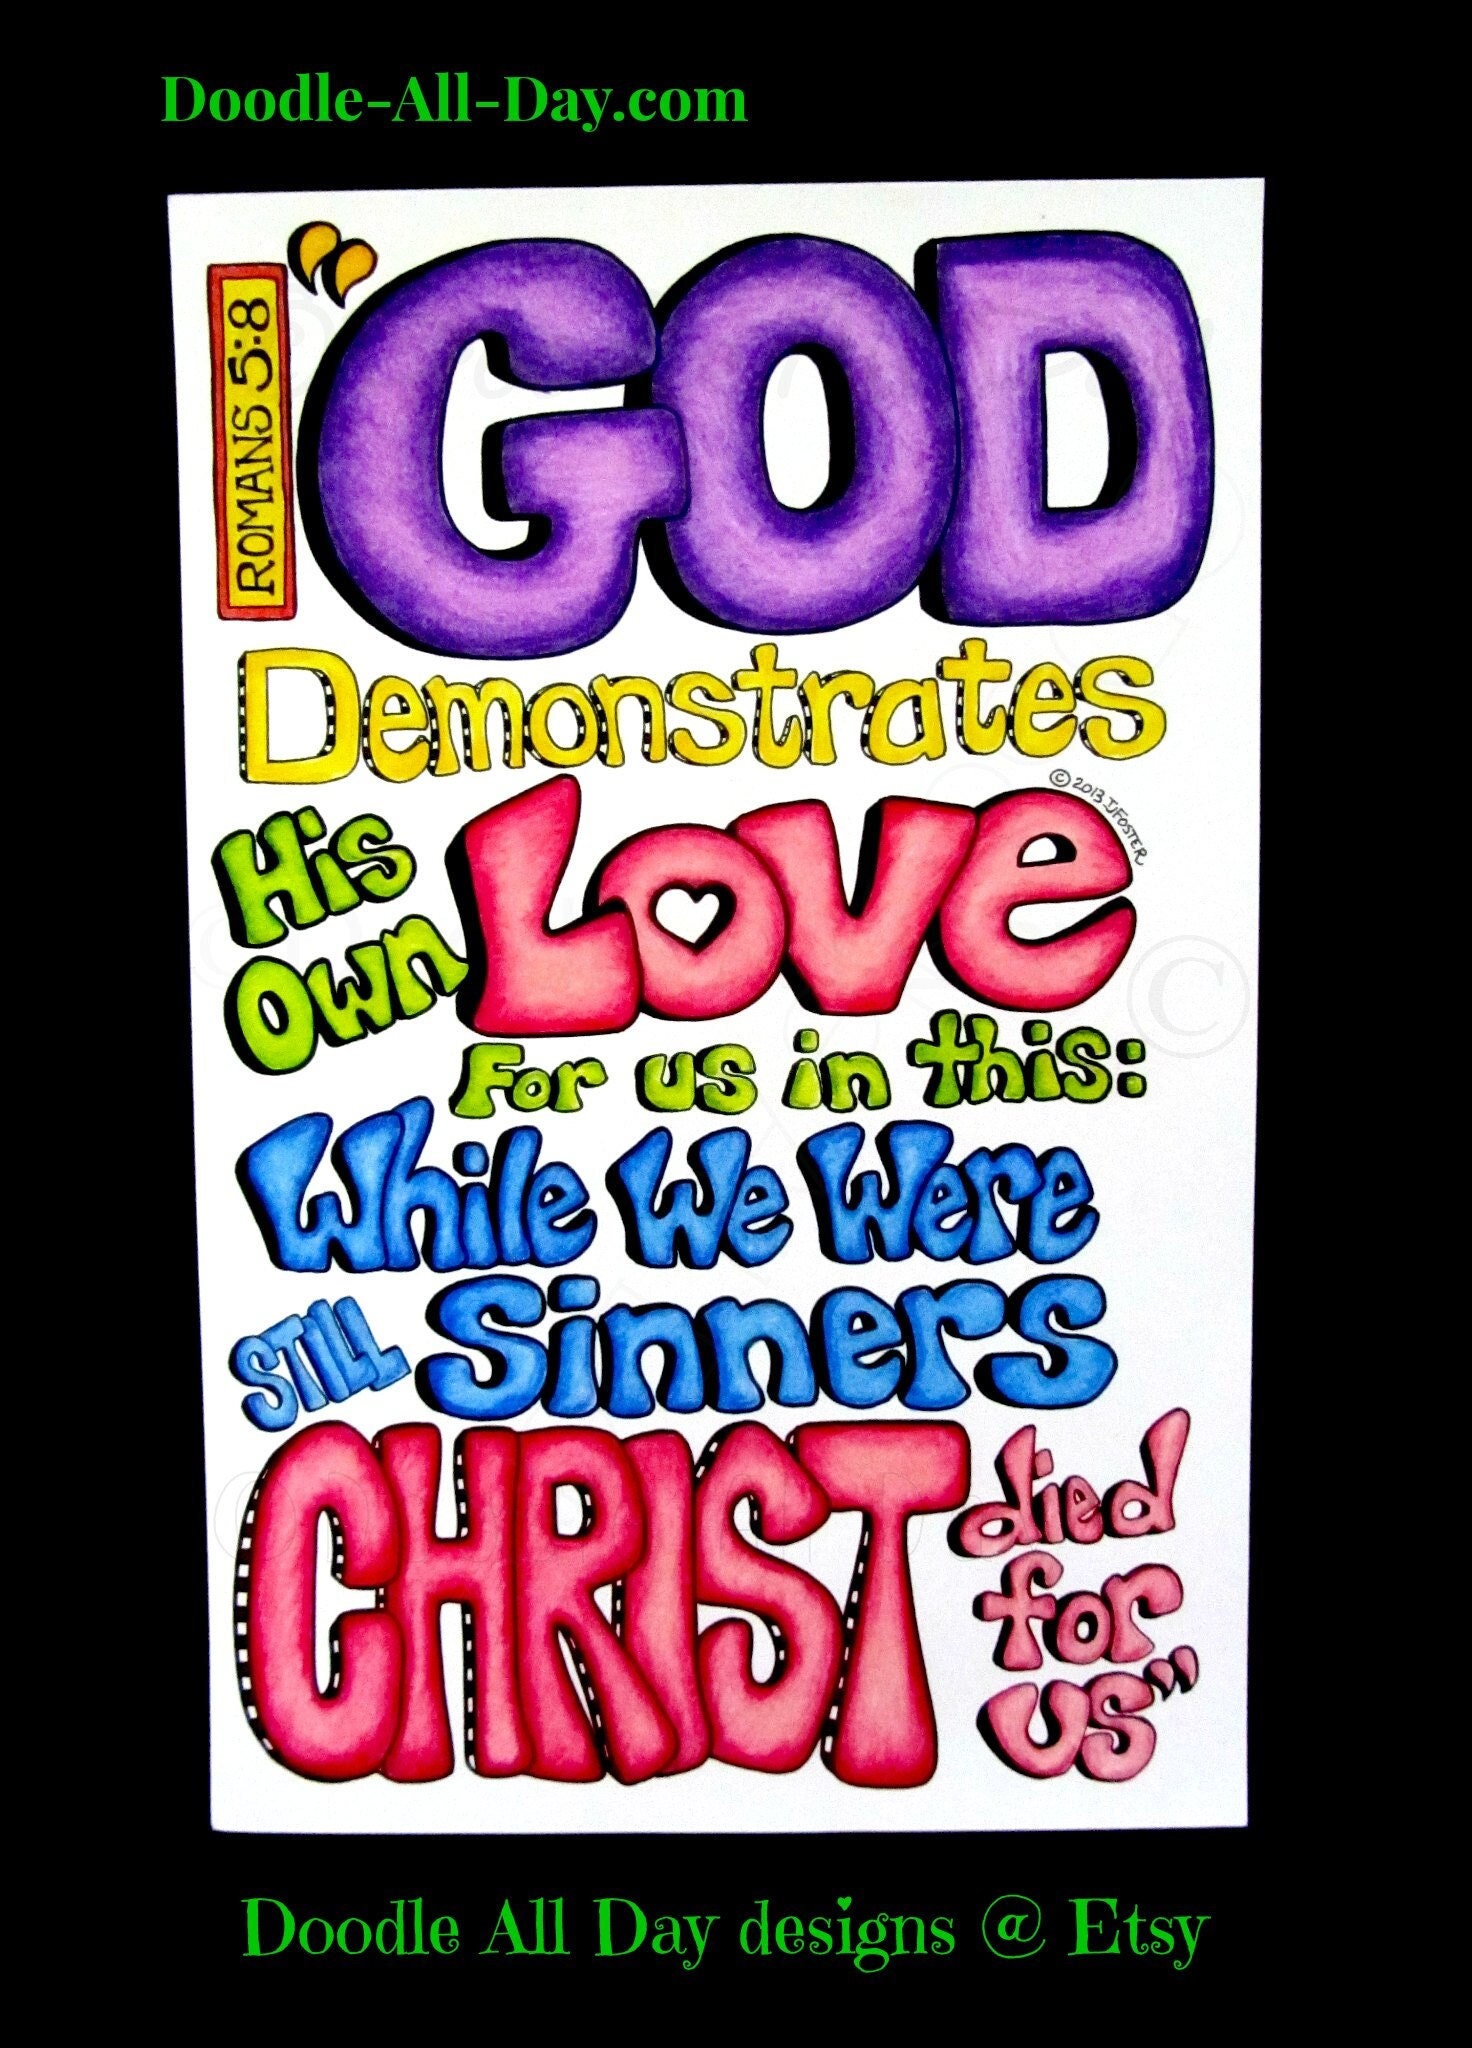 Doodle-All-Day.com
ROMANS 5:8
"GOD
Demonstrates
His Own LOVE
© 2013 TJFOSTER
For us in this:
While We Were
STILL Sinners
CHRIST died for us"
Doodle All Day designs @ Etsy